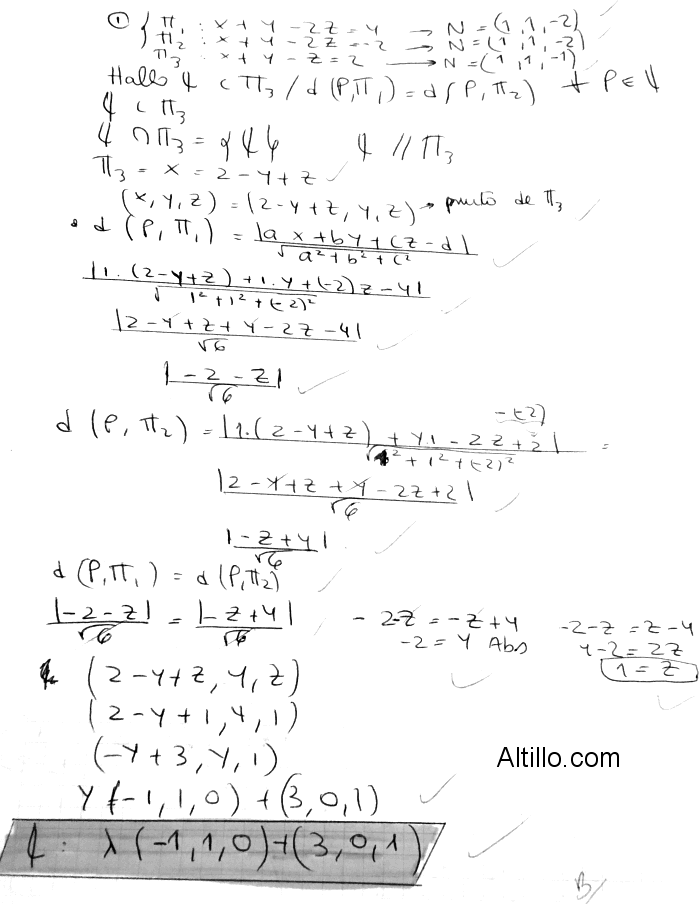 ① { π₁ : x + y - 2z = 4 → N = (1, 1, -2)
π₂ : x + y - 2z = -2 → N = (1, 1, -2)
π₃ : x + y - z = 2 → N = (1, 1, -1)
Hallo ⊄ ⊂ π₃ / d(P,π₁) = d(P,π₂) ∀ P ∈ ⊄
⊄ ⊂ π₃
⊄ ∩ π₃ = {⊄} ⊄ // π₃
π₃ = x = 2 - y + z
(x, y, z) = (2 - y + z, y, z) → punto de π₃
• d (P, π₁) = |ax + by + cz - d| / √a² + b² + c²
|1. (2 - y + z) + 1. y + (-2)z - 4| / √1² + 1² + (-2)²
|2 - y + z + y - 2z - 4| / √6
|-2 - z| / √6
-(-2)
d (P, π₂) = |1.(2 - y + z) + y.1 - 2z + 2| / √1² + 1² + (-2)² =
|2 - y + z + y - 2z + 2| / √6
|-z + 4| / √6
d (P, π₁) = d (P, π₂)
|-2 - z| / √6 = |-z + 4| / √6 - 2-z = -z + 4 -2-z = z-4
-2 = 4 Abs 4-2 = 2z
1 = z
(2 - y + z, y, z)
(2 - y + 1, y, 1)
(-y + 3, y, 1)
Altillo.com
y (-1, 1, 0) + (3, 0, 1)
⊄ : λ (-1, 1, 0) + (3, 0, 1)
B/